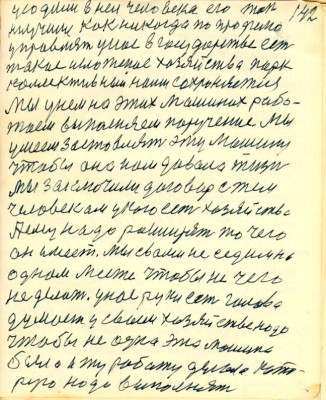 142
угодили в ней человека его
научили как никогда по профило
управлят у нас в государстве ест
такое многое хозяйства парк
коллективный наш сохроняется
Мы у нем на этих Машинах рабо-
таем выполняем поручение Мы
умеем заставлят эту Машину
чтобы она нам давала
Мы заключили договор с тем
человекам у кого ест хозяйства
Нему надо розширят то чего
он имеет. Мы с вами не седим на
одном месте чтобы не чего
не делат. у нас руки ест голова
думает у своем хозяйстве надо
чтобы не одна эта машина
была а ту работу делала кото-
рую надо выполнят